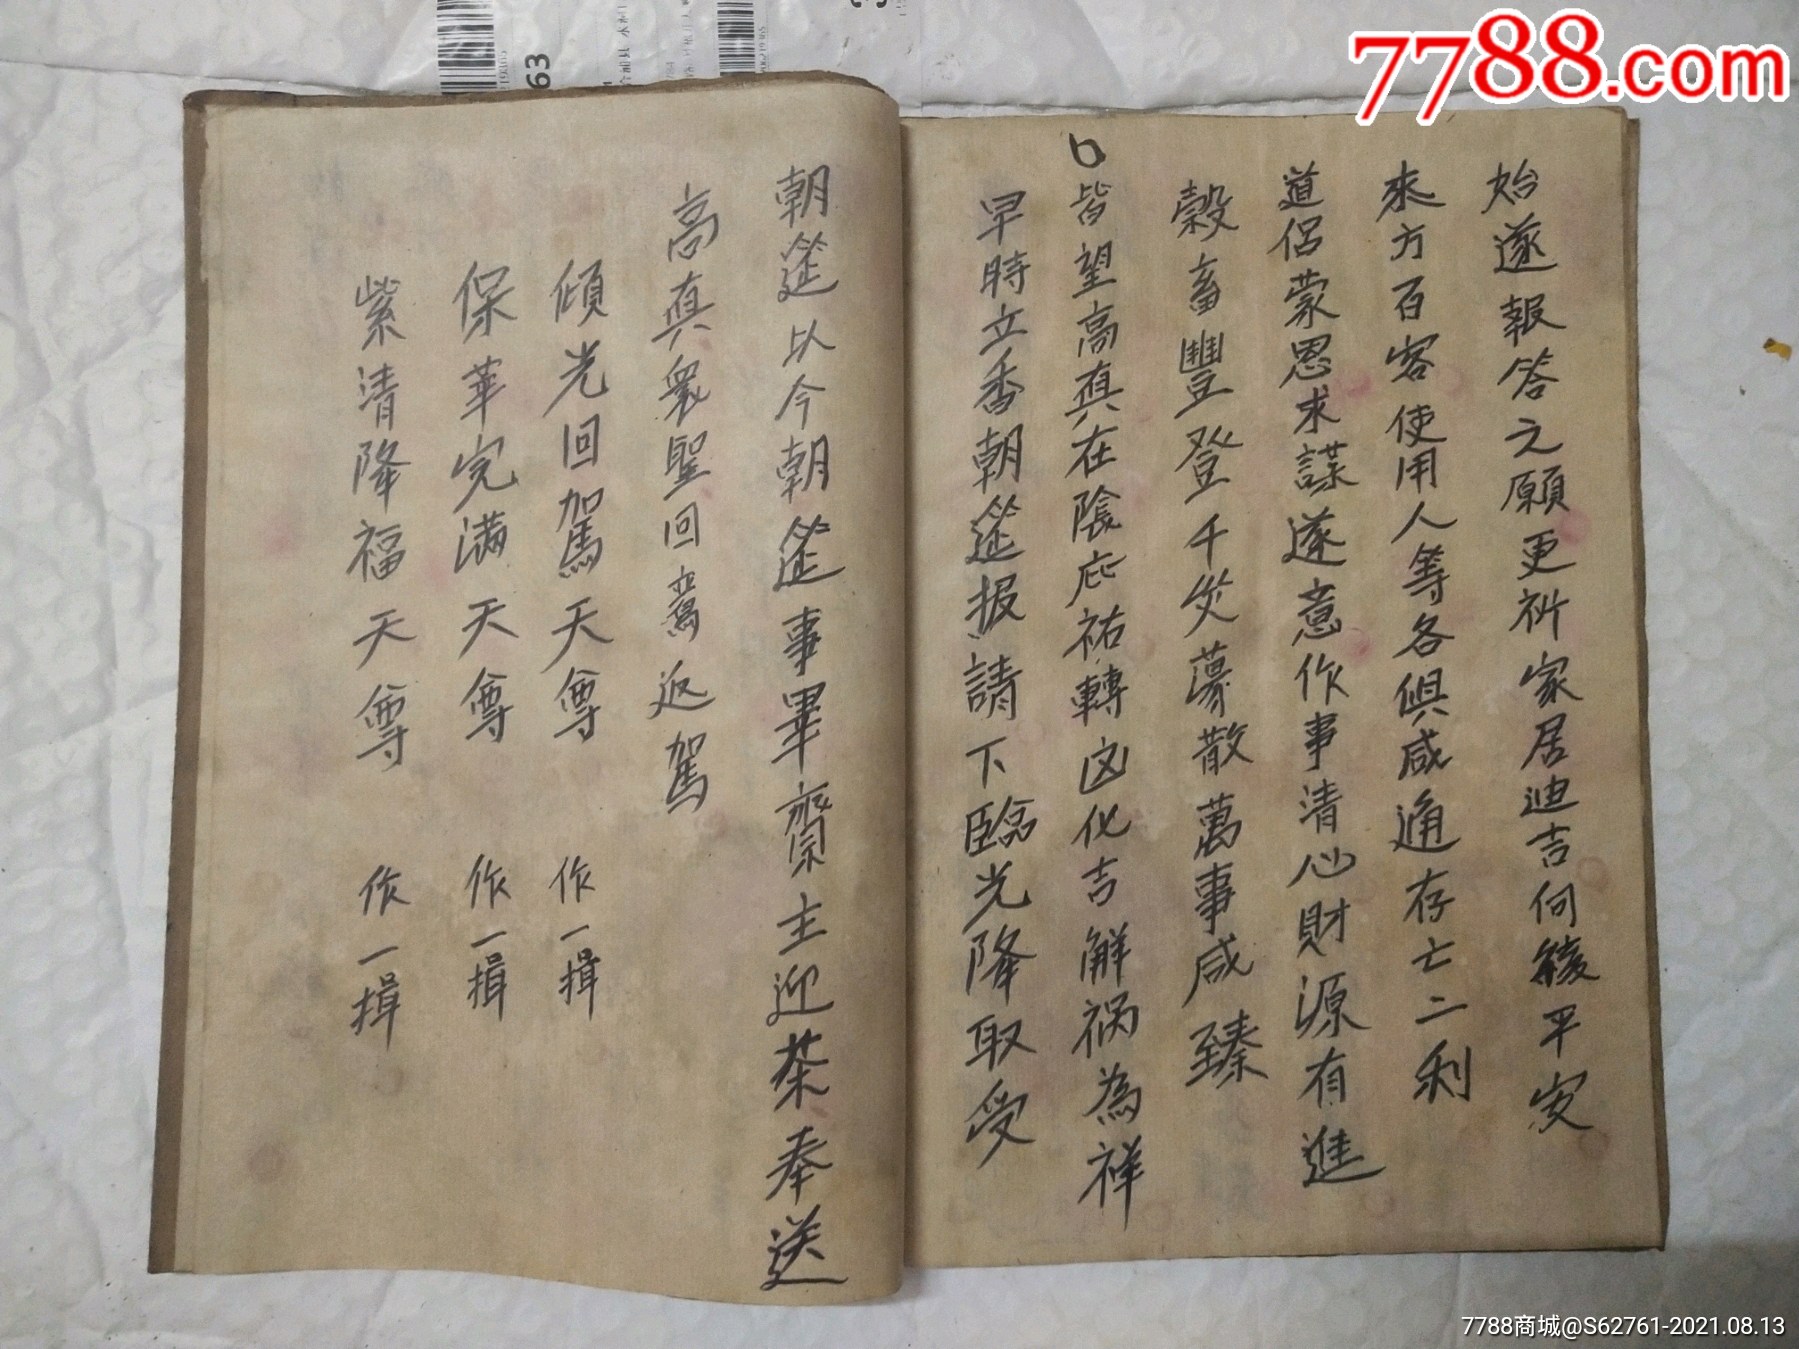 7788.com
始遂報答之願更祈家居迪吉何綾平安
來方百客使用人等各俱咸通存亡二利
道侣蒙恩求謀遂意作事清心財源有進
穀畜豐登千災蕩散萬事咸臻
皆望高真在陰庇祐轉凶化吉解祸為祥
早時立香朝筵报請下臨光降取受
朝筵以今朝筵事畢齋主迎茶奉送
高真衆聖回鸞返駕
傾光回駕天尊 作一揖
保華完满天尊 作一揖
紫清降福天尊 作一揖
63
7788商城@S62761-2021.08.13